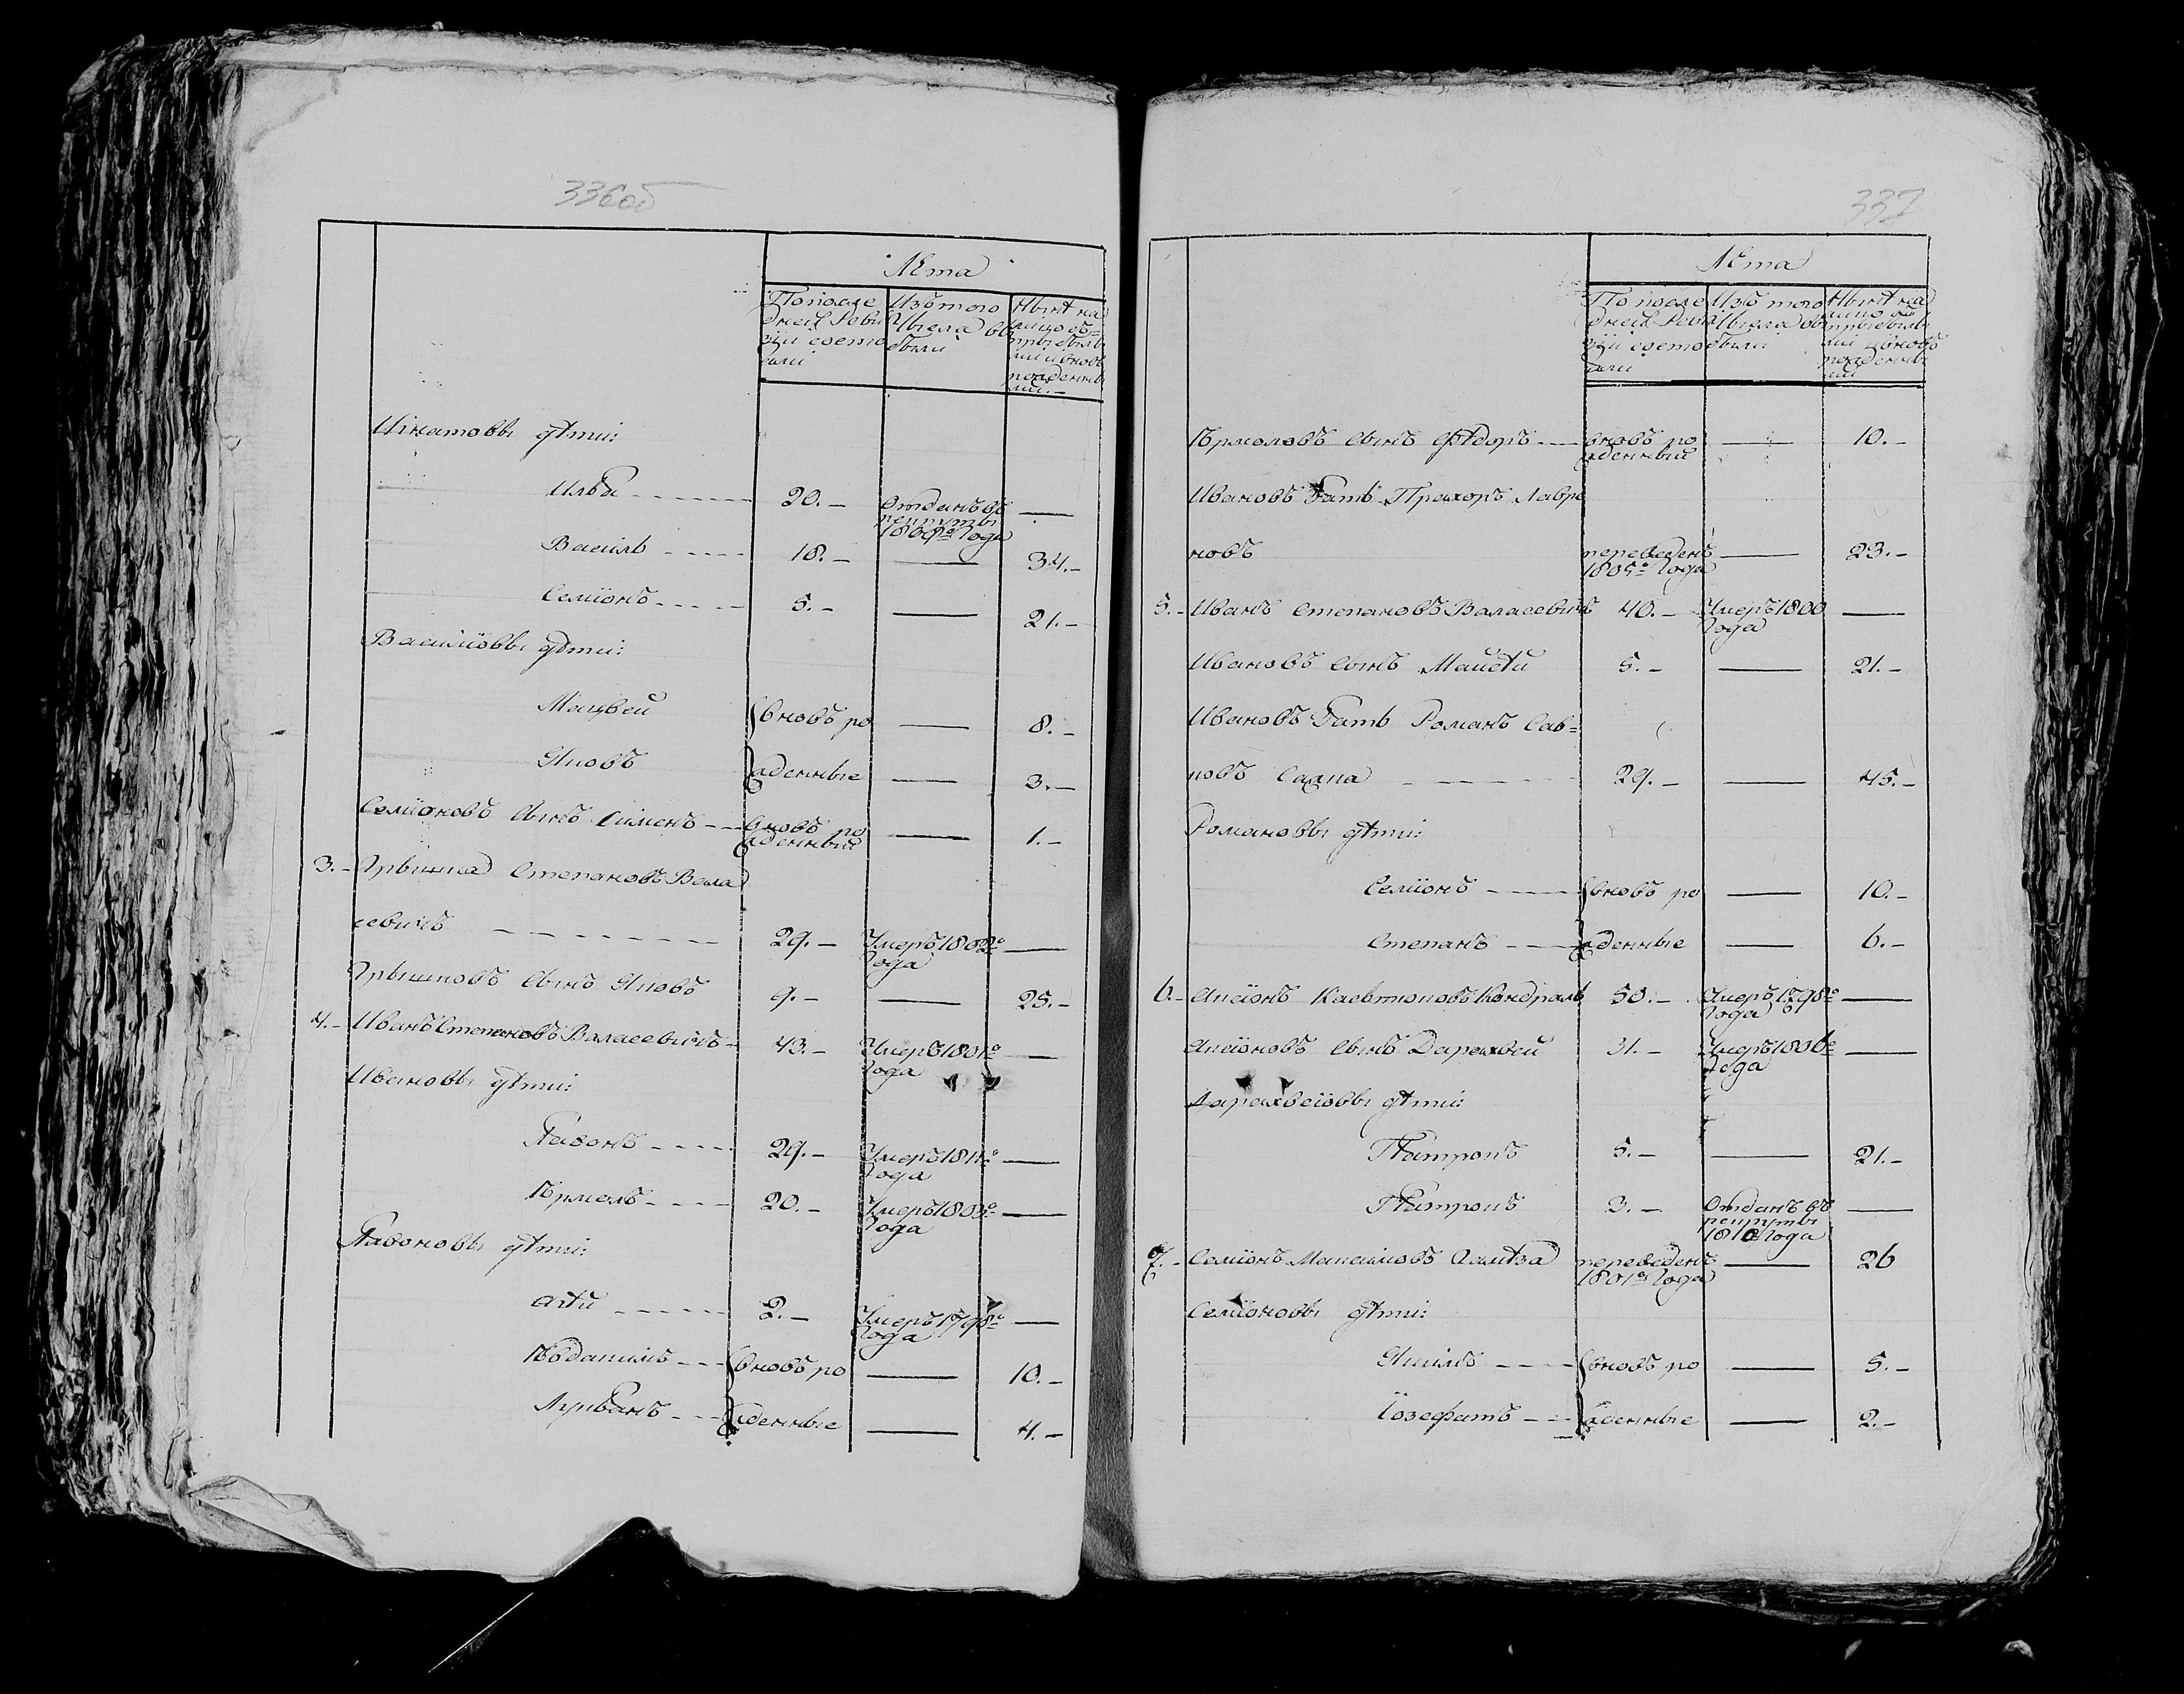 336об
Лѣта
По после
дней Реви
зіи состо
яли
Изъ того
Числа вы
были
Нынѣ на
лицо съ
прыбывшы
ми и вновь
рожденны
ми.
Игнатовы дѣти:
Илья 20. Отданъ въ рекруты 1809го Года —
Василь 18. — 34.
Семіонъ 5. — 21.
Васильовы дѣти:
Мацвей вновъ ро — 8.
Яковъ жденные — 3.
Семіоновъ Сынъ Симонъ вновъ ро — 1.
жденный
3. Грышка Степановъ Вала
севичъ 29. Умеръ 1802го —
Года
Грышковъ Сынъ Яковъ 9. — 25.
4. Иванъ Степановъ Валасевичъ 43. Умеръ 1801го —
Года
Ивановы дѣти:
29. Умеръ 1811го —
Года
Ермолъ 20. Умеръ 1803го —
Года
дѣти:
2. Умеръ 1798го —
Года
вновъ ро — 10.
жденные — 4.
337
Лѣта
По после
дней Реви
зіи состо
яли
Изъ того
Числа вы
были
Нынѣ на
лицо съ
прыбывшы
ми и вновъ
рожденны
ми
Ермоловъ Сынъ Фѣдоръ вновъ ро — 10.
жденный
Ивановъ Зять Прахоръ Лавре
новъ переведенъ — 23.
1805го Года
5. Иванъ Степановъ Валасевичъ 40. Умеръ 1800 —
Года
Ивановъ Сынъ Маисѣй 5. — 21.
Ивановъ Зять Романъ Сав=
ковъ 29. — 45.
Романовы дѣти:
Семіонъ вновъ ро — 10.
Степанъ жденные — 6.
6. Апсіонъ 50. Умеръ 1798го —
Года
Апсіоновъ Сынъ Дарахвей 31. Умеръ 1806го —
Года
Дарахвеіовы дѣти:
Пѣтрокъ 5. — 21.
Пѣтрокъ 3. Отданъ въ —
рекруты
1810 Года
7. Семіонъ Максимовъ переведенъ — 26
1801го Года
Семіоновы дѣти:
вновъ ро — 5.
Іозефатъ жденные — 2.